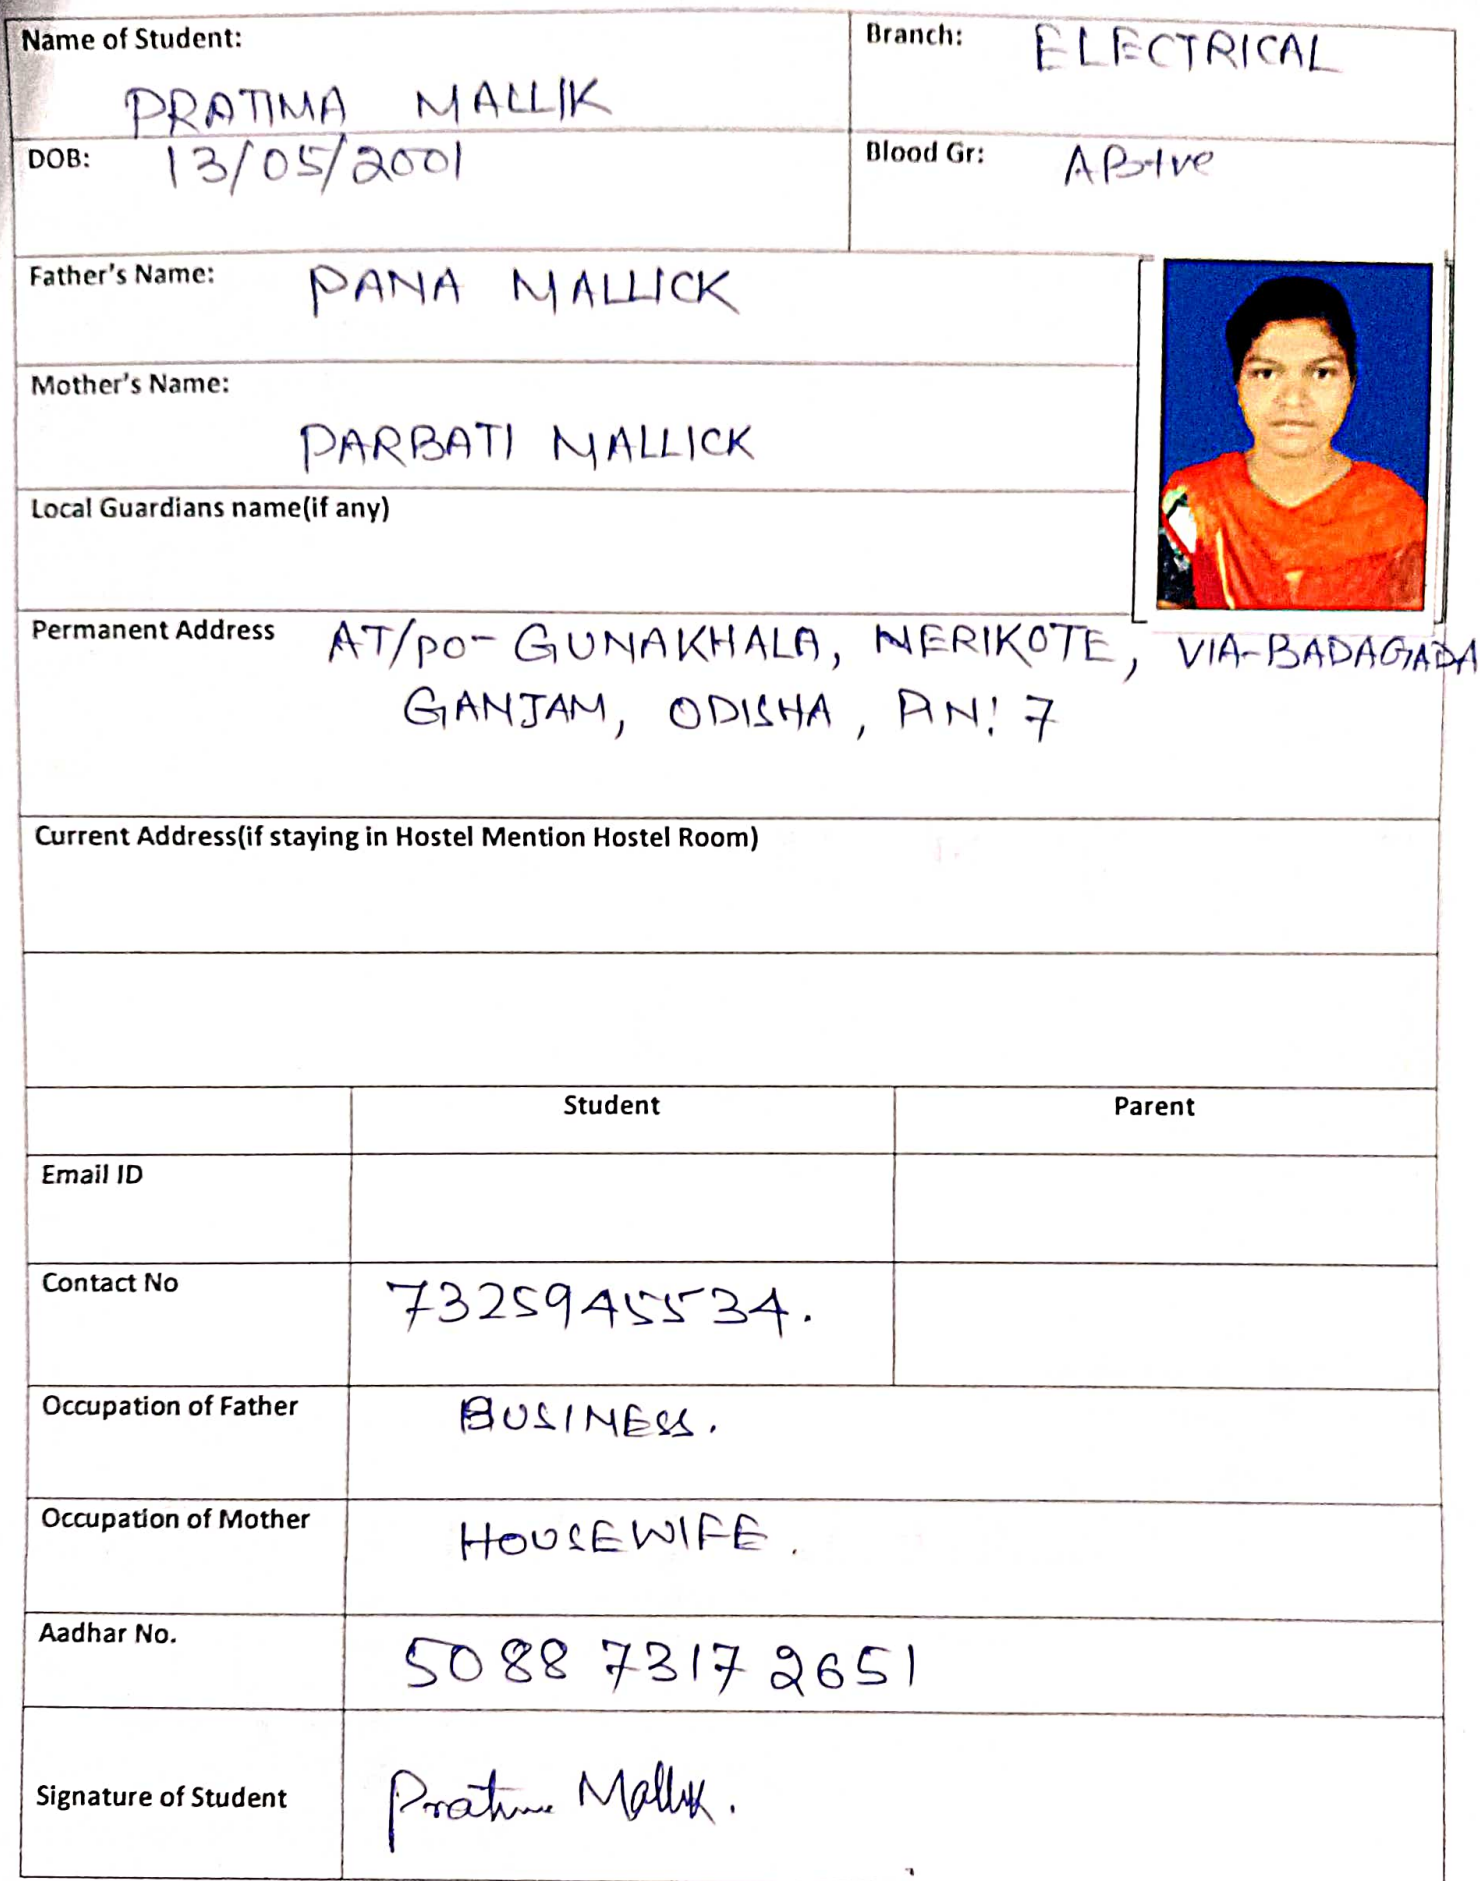 Name of Student:
PRATIMA MALLIK
Branch: ELECTRICAL
DOB: 13/05/2001
Blood Gr: AB+ve
Father's Name: PANA MALLICK
Mother's Name:
PARBATI MALLICK
Local Guardians name(if any)
Permanent Address AT/PO- GUNAKHALA, NERIKOTE, VIA-BADAGADA
GANJAM, ODISHA, PIN: 7
Current Address(if staying in Hostel Mention Hostel Room)
Student Parent
Email ID
Contact No 7325945534.
Occupation of Father BUSINESS.
Occupation of Mother HOUSEWIFE.
Aadhar No. 5088 7317 2651
Signature of Student Pratima Mallik.